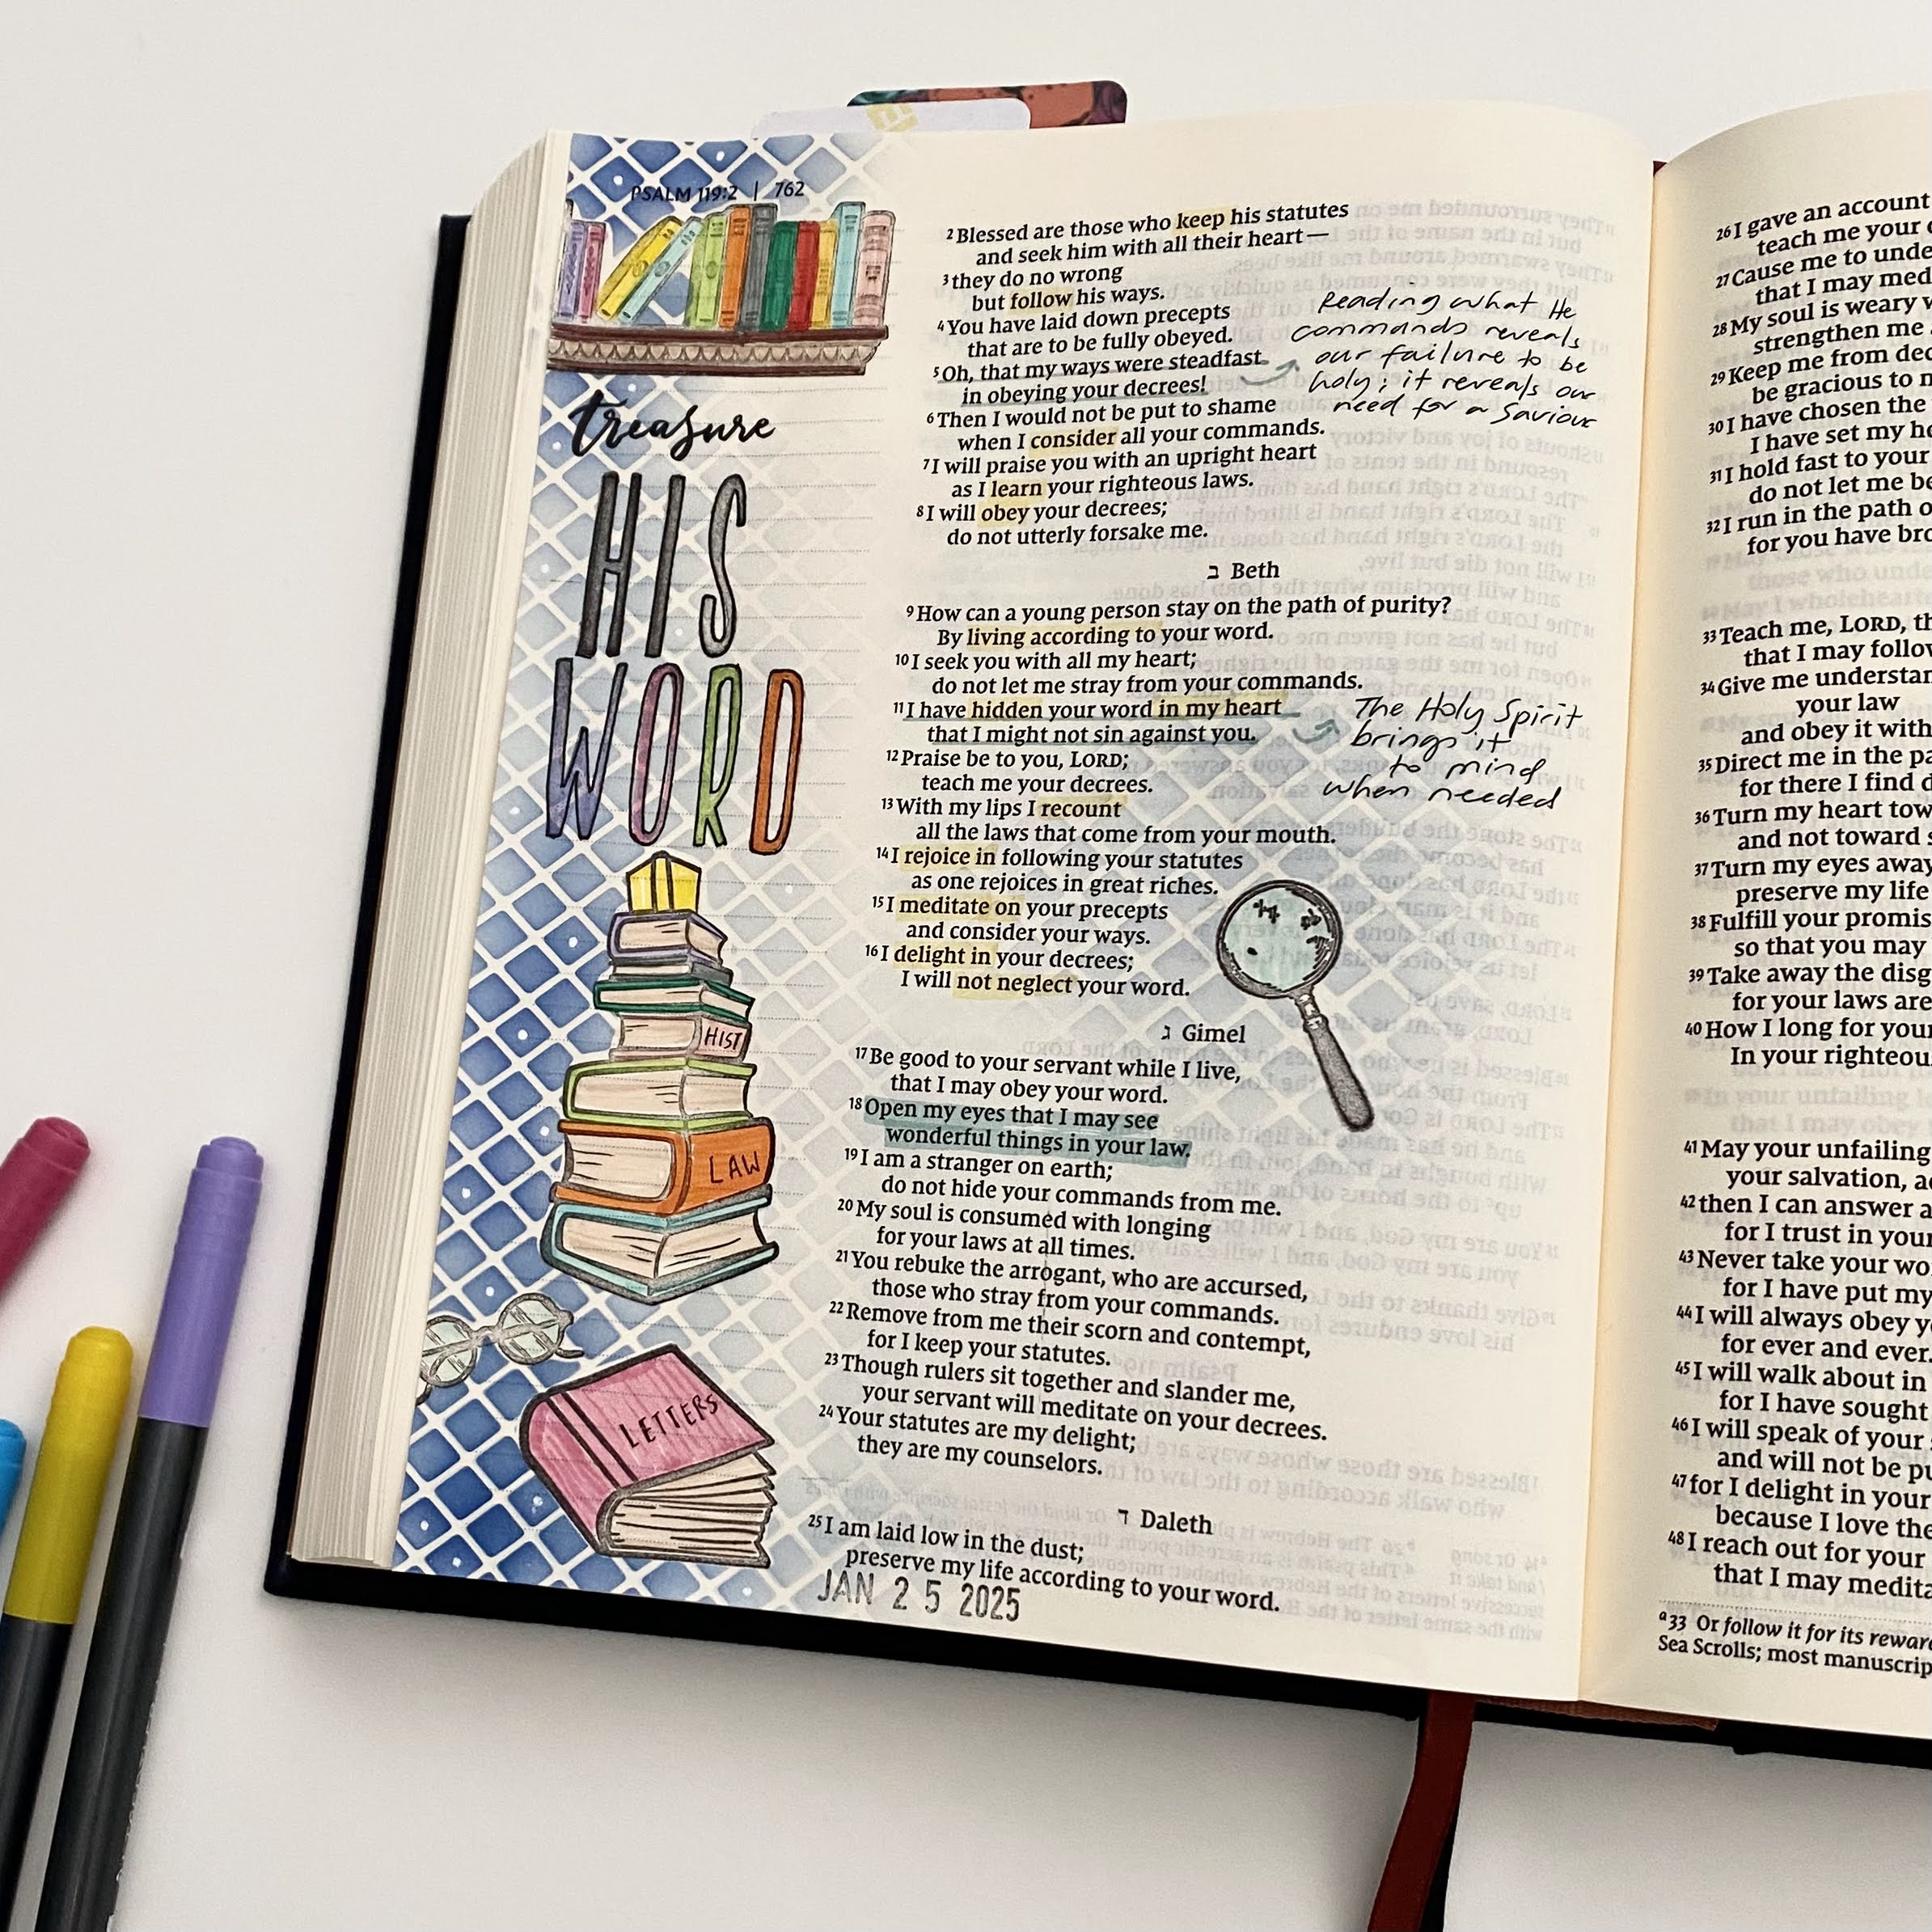 PSALM 119:2 | 762
treasure
HIS
WORD
HIST
LAW
LETTERS
2 Blessed are those who keep his statutes
and seek him with all their heart—
3 they do no wrong
but follow his ways.
4 You have laid down precepts
that are to be fully obeyed.
5 Oh, that my ways were steadfast
in obeying your decrees!
6 Then I would not be put to shame
when I consider all your commands.
7 I will praise you with an upright heart
as I learn your righteous laws.
8 I will obey your decrees;
do not utterly forsake me.
Reading what He
commands reveals
our failure to be
holy; it reveals our
need for a Saviour
ב Beth
9 How can a young person stay on the path of purity?
By living according to your word.
10 I seek you with all my heart;
do not let me stray from your commands.
11 I have hidden your word in my heart
that I might not sin against you.
12 Praise be to you, LORD;
teach me your decrees.
13 With my lips I recount
all the laws that come from your mouth.
14 I rejoice in following your statutes
as one rejoices in great riches.
15 I meditate on your precepts
and consider your ways.
16 I delight in your decrees;
I will not neglect your word.
The Holy Spirit
brings it
to mind
when needed
ג Gimel
17 Be good to your servant while I live,
that I may obey your word.
18 Open my eyes that I may see
wonderful things in your law.
19 I am a stranger on earth;
do not hide your commands from me.
20 My soul is consumed with longing
for your laws at all times.
21 You rebuke the arrogant, who are accursed,
those who stray from your commands.
22 Remove from me their scorn and contempt,
for I keep your statutes.
23 Though rulers sit together and slander me,
your servant will meditate on your decrees.
24 Your statutes are my delight;
they are my counselors.
ד Daleth
25 I am laid low in the dust;
preserve my life according to your word.
JAN 25 2025
26 I gave an account
teach me your
27 Cause me to unde
that I may med
28 My soul is weary w
strengthen me
29 Keep me from dec
be gracious to
30 I have chosen the
I have set my he
31 I hold fast to your
do not let me be
32 I run in the path o
for you have bro
33 Teach me, LORD, th
that I may follow
34 Give me understan
your law
and obey it with
35 Direct me in the pa
for there I find d
36 Turn my heart tow
and not toward s
37 Turn my eyes away
preserve my life
38 Fulfill your promis
so that you may
39 Take away the disg
for your laws are
40 How I long for your
In your righteou
41 May your unfailing
your salvation, ac
42 then I can answer a
for I trust in your
43 Never take your wo
for I have put my
44 I will always obey yo
for ever and ever.
45 I will walk about in
for I have sought
46 I will speak of your
and will not be pu
47 for I delight in your
because I love the
48 I reach out for your
that I may medita
a 33 Or follow it for its reward
Sea Scrolls; most manuscrip